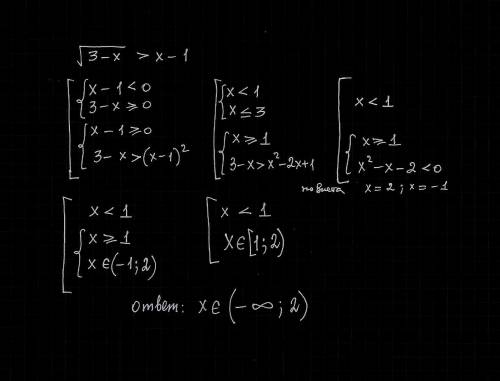 √3-x > x-1
x-1<0
3-x≥0
x-1≥0
3-x>(x-1)²
x<1
x≤3
x≥1
3-x>x²-2x+1
x<1
x≥1
x²-x-2<0
x=2; x=-1
x<1
x≥1
x∈(-1;2)
x<1
x∈[1;2)
ответ: x∈(-∞;2)